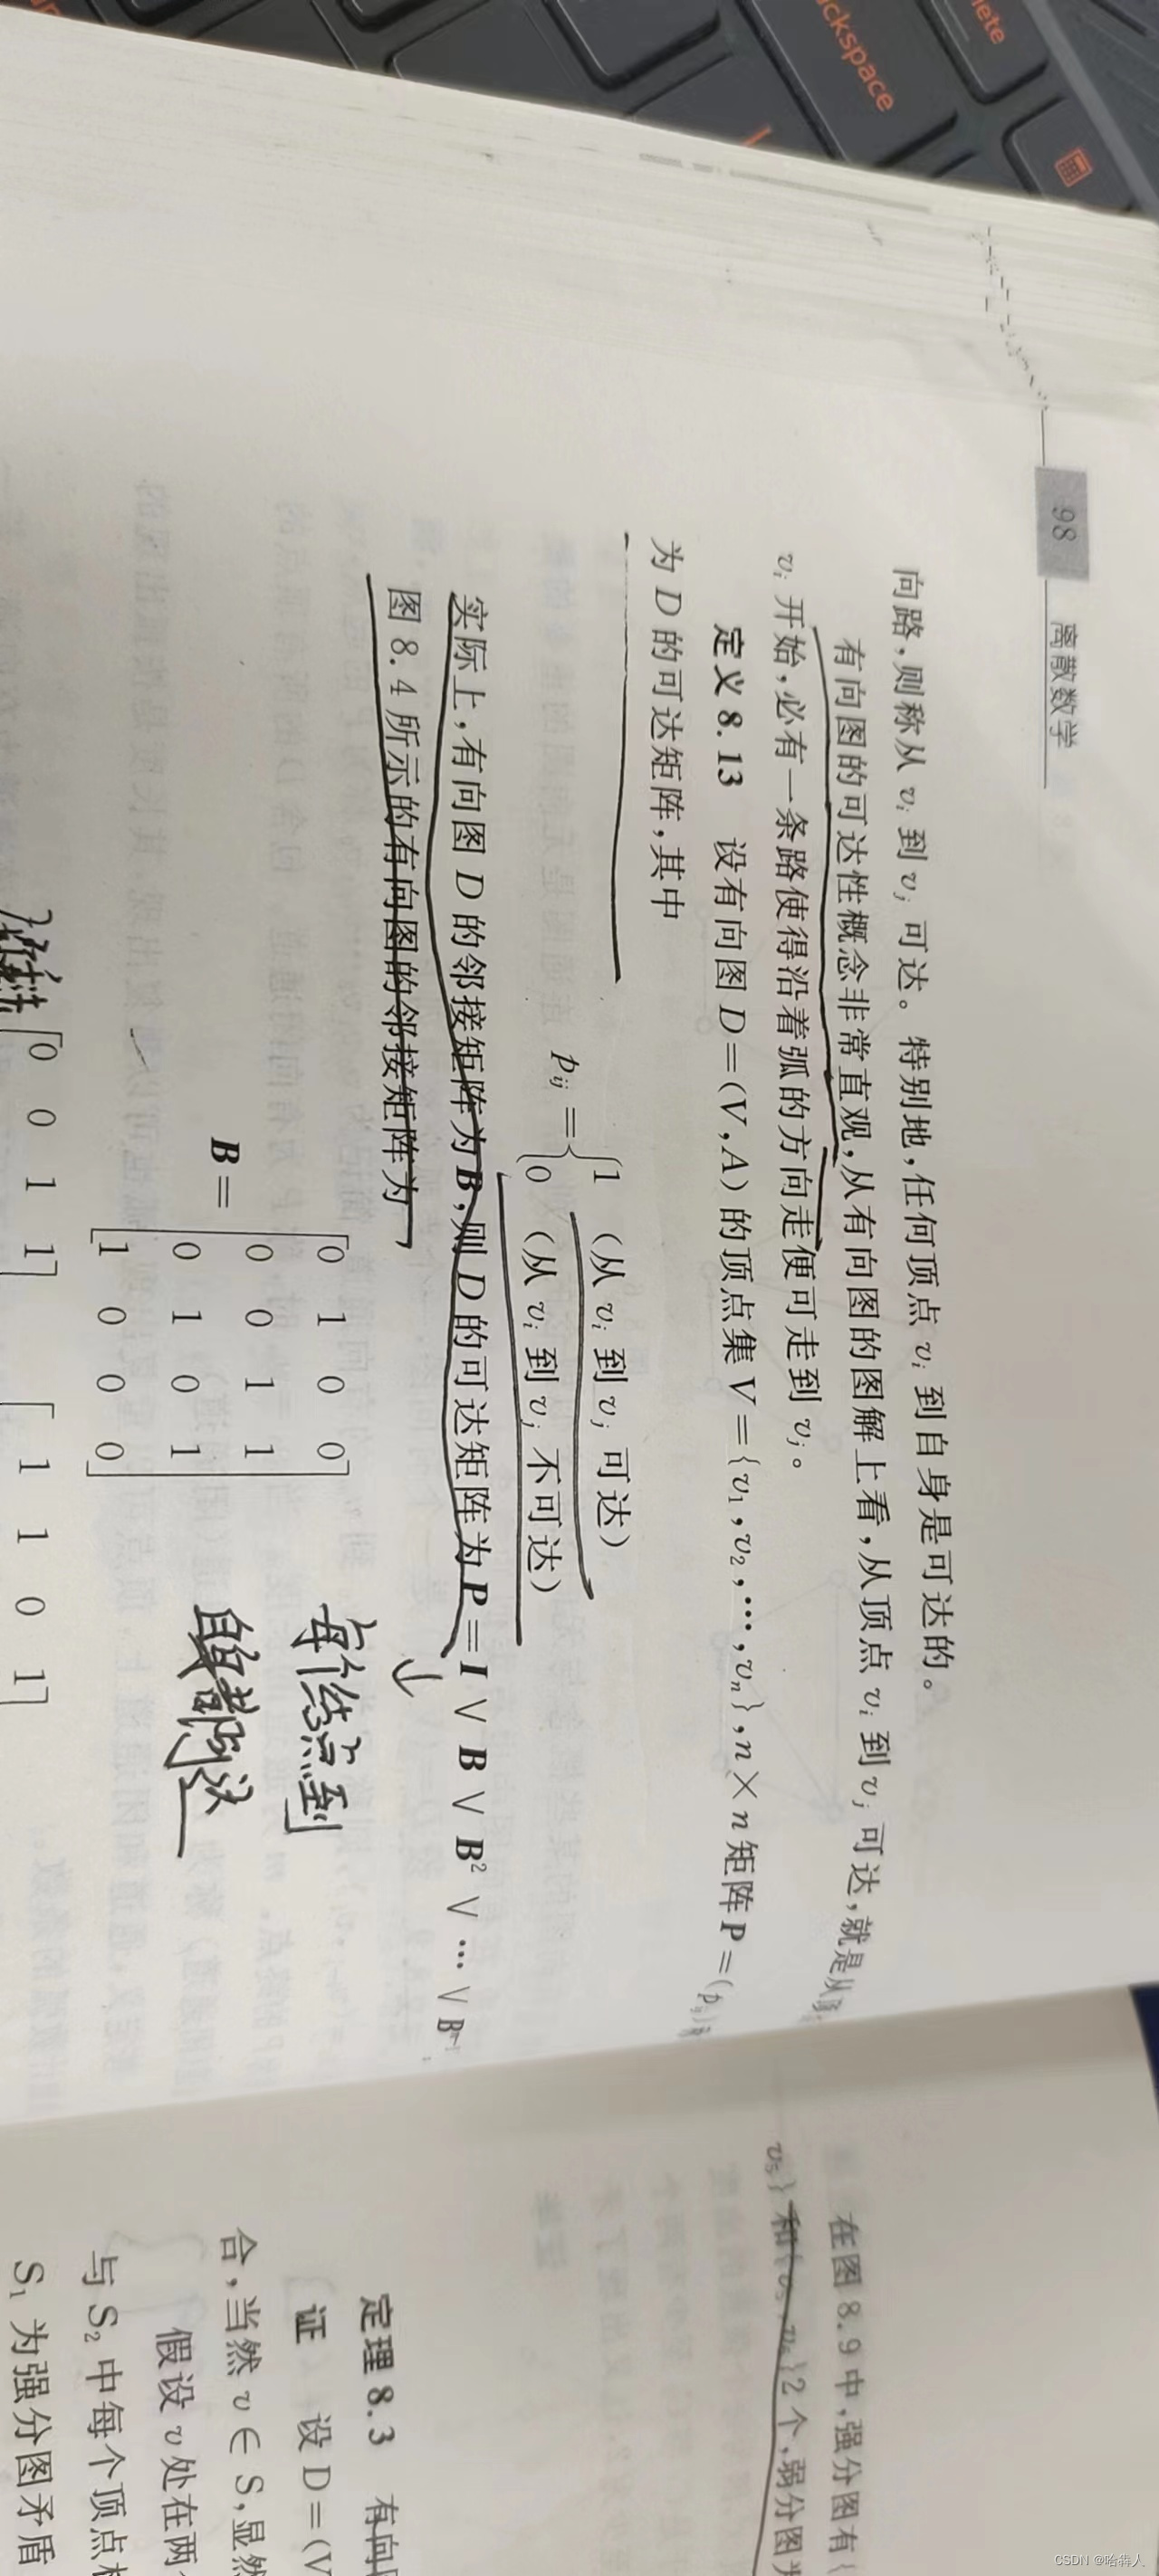 ckspace
lete
98
离散数学
向路,则称从 vᵢ 到 vⱼ 可达。特别地,任何顶点 vᵢ 到自身是可达的。
有向图的可达性概念非常直观,从有向图的图解上看,从顶点 vᵢ 到 vⱼ 可达,就是从
vᵢ 开始,必有一条路使得沿着弧的方向走便可走到 vⱼ。
定义 8.13 设有向图 D=(V,A) 的顶点集 V={v₁,v₂,…,vₙ},n×n 矩阵 P=(pᵢⱼ)
为 D 的可达矩阵,其中
pᵢⱼ={1 (从 vᵢ 到 vⱼ 可达)
0 (从 vᵢ 到 vⱼ 不可达)
实际上,有向图 D 的邻接矩阵为 B,则 D 的可达矩阵为 P=I∨B∨B²∨…∨Bⁿ⁻¹
↓
图 8.4 所示的有向图的邻接矩阵为
每个结点到
自身都可达
B=
[0 1 0 0]
0 0 1 1
0 1 0 1
[1 0 0 0]
[0 0 1 1]
[1 1 0 1]
在图 8.9 中,强分图有{
v₅}和{v₅,v₆}2 个,弱分图为
定理 8.3 有向
证 设 D=(V
合,当然 v∈S,显然
假设 v 处在两
与 S₂ 中每个顶点相
S₁ 为强分图矛盾
CSDN @哈犇人